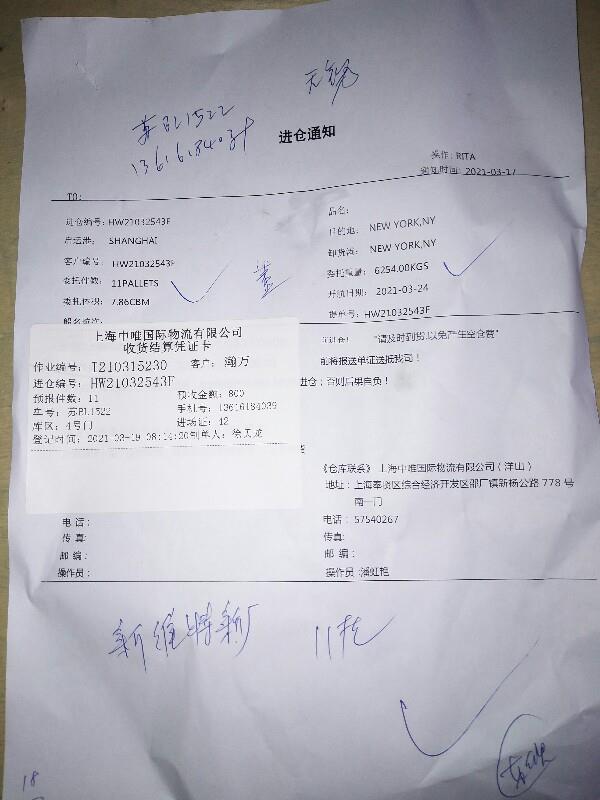 无锡
苏BL1522
13616184039
进仓通知
操作: RITA
通知时间: 2021-03-17
TO:
品名:
进仓编号: HW21032543F
目的地: NEW YORK,NY
启运港: SHANGHAI
卸货港: NEW YORK,NY
客户编号: HW21032543F
委托重量: 6254.00KGS
委托件数: 11PALLETS
开航日期: 2021-03-24
委托体积: 7.86CBM
提单号: HW21032543F
船名航次:
"请及时到货,以免产生空仓费"
前将报送单证送报我司!
进仓; 否则后果自负!
上海中唯国际物流有限公司
收货结算凭证卡
作业编号: I210315230 客户: 瀚万
进仓编号: HW21032543F
预报件数: 11 预收金额: 800
车号: 苏BL1522 手机号: 13616184039
库区: 4号门 进场证: 42
登记时间: 2021-03-19 08:14:20制单人: 徐天龙
《仓库联系》上海中唯国际物流有限公司(洋山)
地址: 上海奉贤区综合经济开发区邵厂镇新杨公路 778 号
南一门
电话:
电话: 57540267
传真:
传真:
邮编:
邮编:
操作员:
操作员:潘虹艳
新维特新厂 11托
18